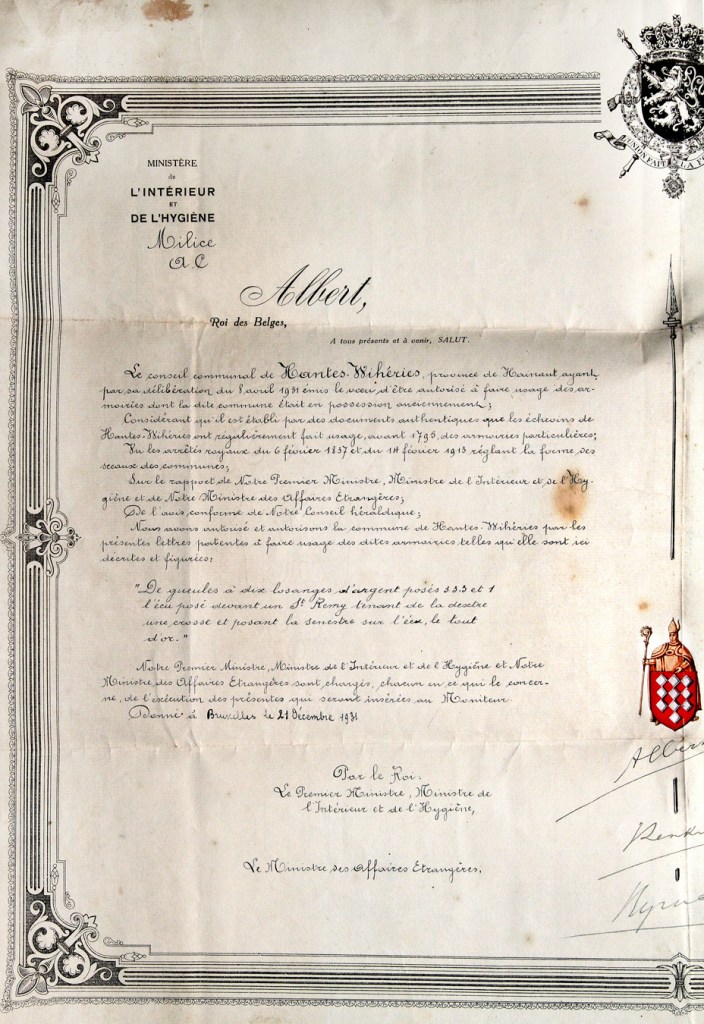 MINISTÈRE
de
L'INTÉRIEUR
ET
DE L'HYGIÈNE
Milice
A.C
L'UNION FAIT LA F
Albert,
Roi des Belges,
A tous présents et à venir, SALUT.
Le conseil communal de Hantes-Wihéries, province de Hainaut, ayant,
par sa délibération du 8 avril 1931 émis le vœu d'être autorisé à faire usage des ar-
moiries dont la dite commune était en possession anciennement;
Considérant qu'il est établi par des documents authentiques que les échevins de
Hantes-Wihéries ont régulièrement fait usage, avant 1795, des armoiries particulières;
Vu les arrêtés royaux du 6 février 1837 et du 14 février 1913 réglant la forme des
sceaux des communes;
Sur le rapport de Notre Premier Ministre, Ministre de l'Intérieur et de l'Hy-
giène et de Notre Ministre des Affaires Etrangères;
De l'avis conforme de Notre Conseil héraldique;
Nous avons autorisé et autorisons la commune de Hantes-Wihéries par les
présentes lettres patentes à faire usage des dites armoiries telles qu'elle sont ici
décrites et figurées:
"De gueules à dix losanges d'argent posés 3.3.3 et 1
l'écu posé devant un St Remy tenant de la dextre
une crosse et posant la senestre sur l'écu, le tout
d'or."
Notre Premier Ministre, Ministre de l'Intérieur et de l'Hygiène et Notre
Ministre des Affaires Etrangères sont chargés, chacun en ce qui le concer-
ne, de l'exécution des présentes qui seront insérées au Moniteur.
Donné à Bruxelles le 21 Décembre 1931
Albert
Par le Roi:
Le Premier Ministre, Ministre de
l'Intérieur et de l'Hygiène,
Le Ministre des Affaires Etrangères,